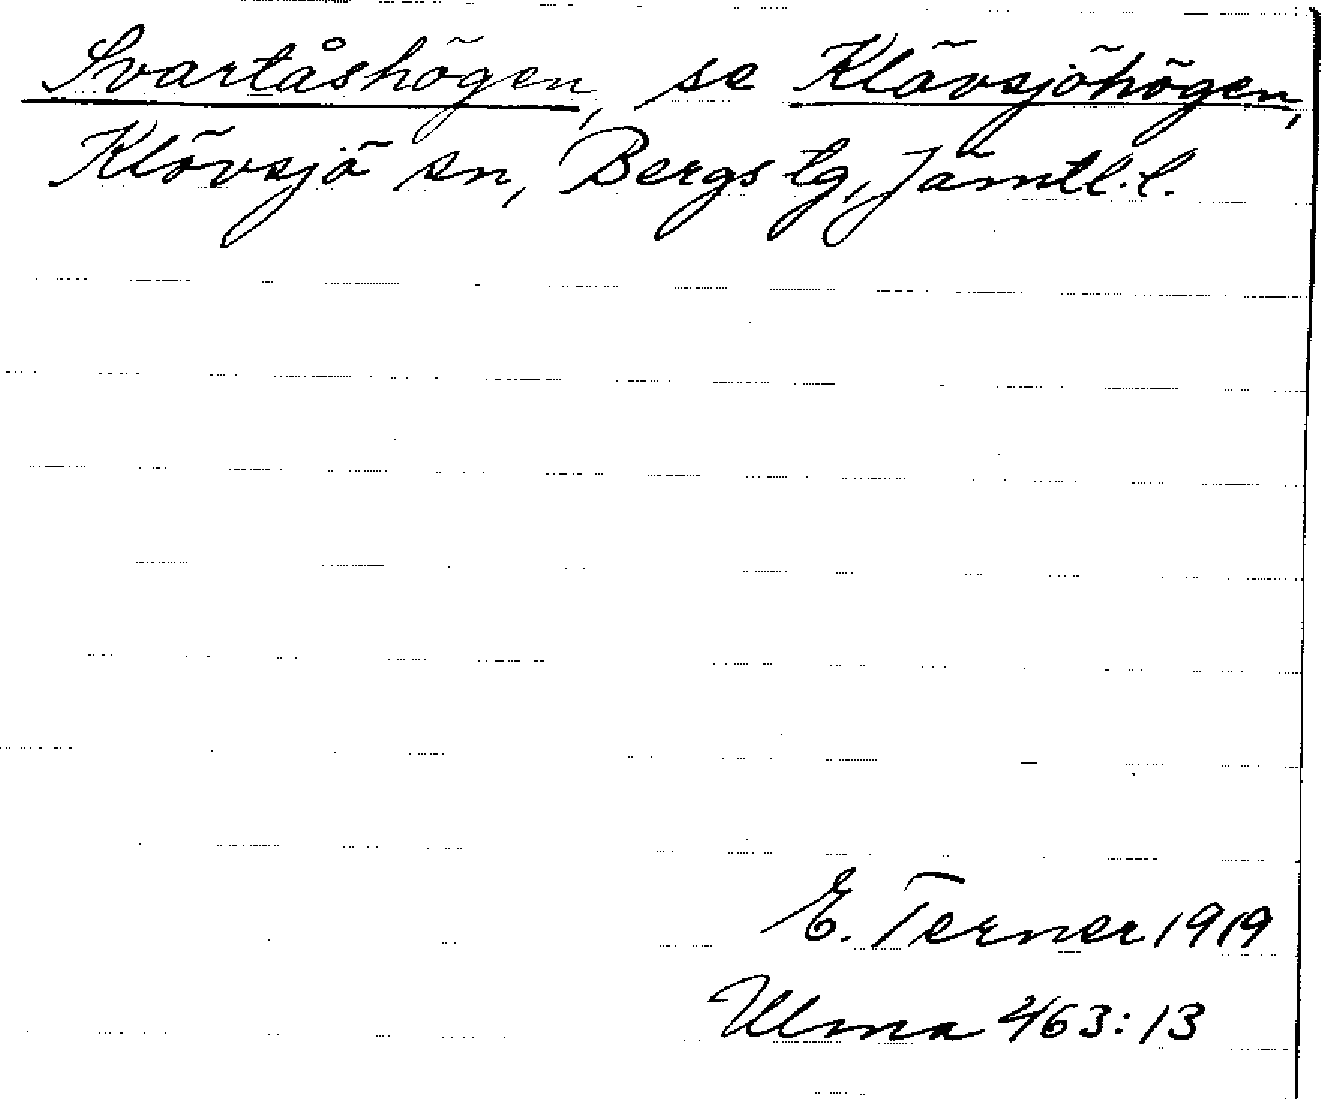 Svartåshögen, se Klövsjöhögen,
Klövsjö sn, Bergs tg, Jämtl. l.
E. Terner 1919
Ulma 463:13